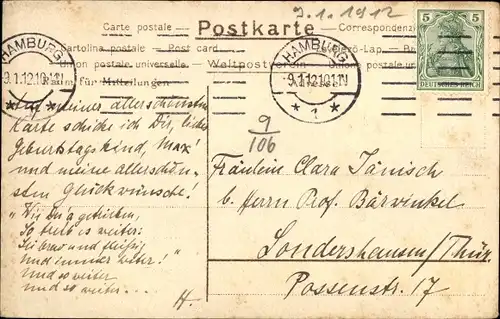 Carte postale — Postkarte — Correspondenz
9.1.1912
Cartolina postale — Post card
Union postale universelle. Weltpostverein
Raum für Mitteilungen
HAMBURG
9.1.12.10-11V
* 1 *
HAMBURG
9.1.12.10-11V
* 1 *
5 5
DEUTSCHES REICH
9/106
meiner allerschönsten
Karte schicke ich Dir, liebes
Geburtstagskind, Max!
und meine allerschön-
sten Glückwünsche!
"Wie Du's getrieben,
So treib es weiter:
Sei brav und fleißig
und immer heiter!"
Und so weiter
und so weiter....
H.
Fräulein Clara Jänisch
b. Herrn Prof. Bärwinkel
Sondershausen/Thür
Possenstr. 17